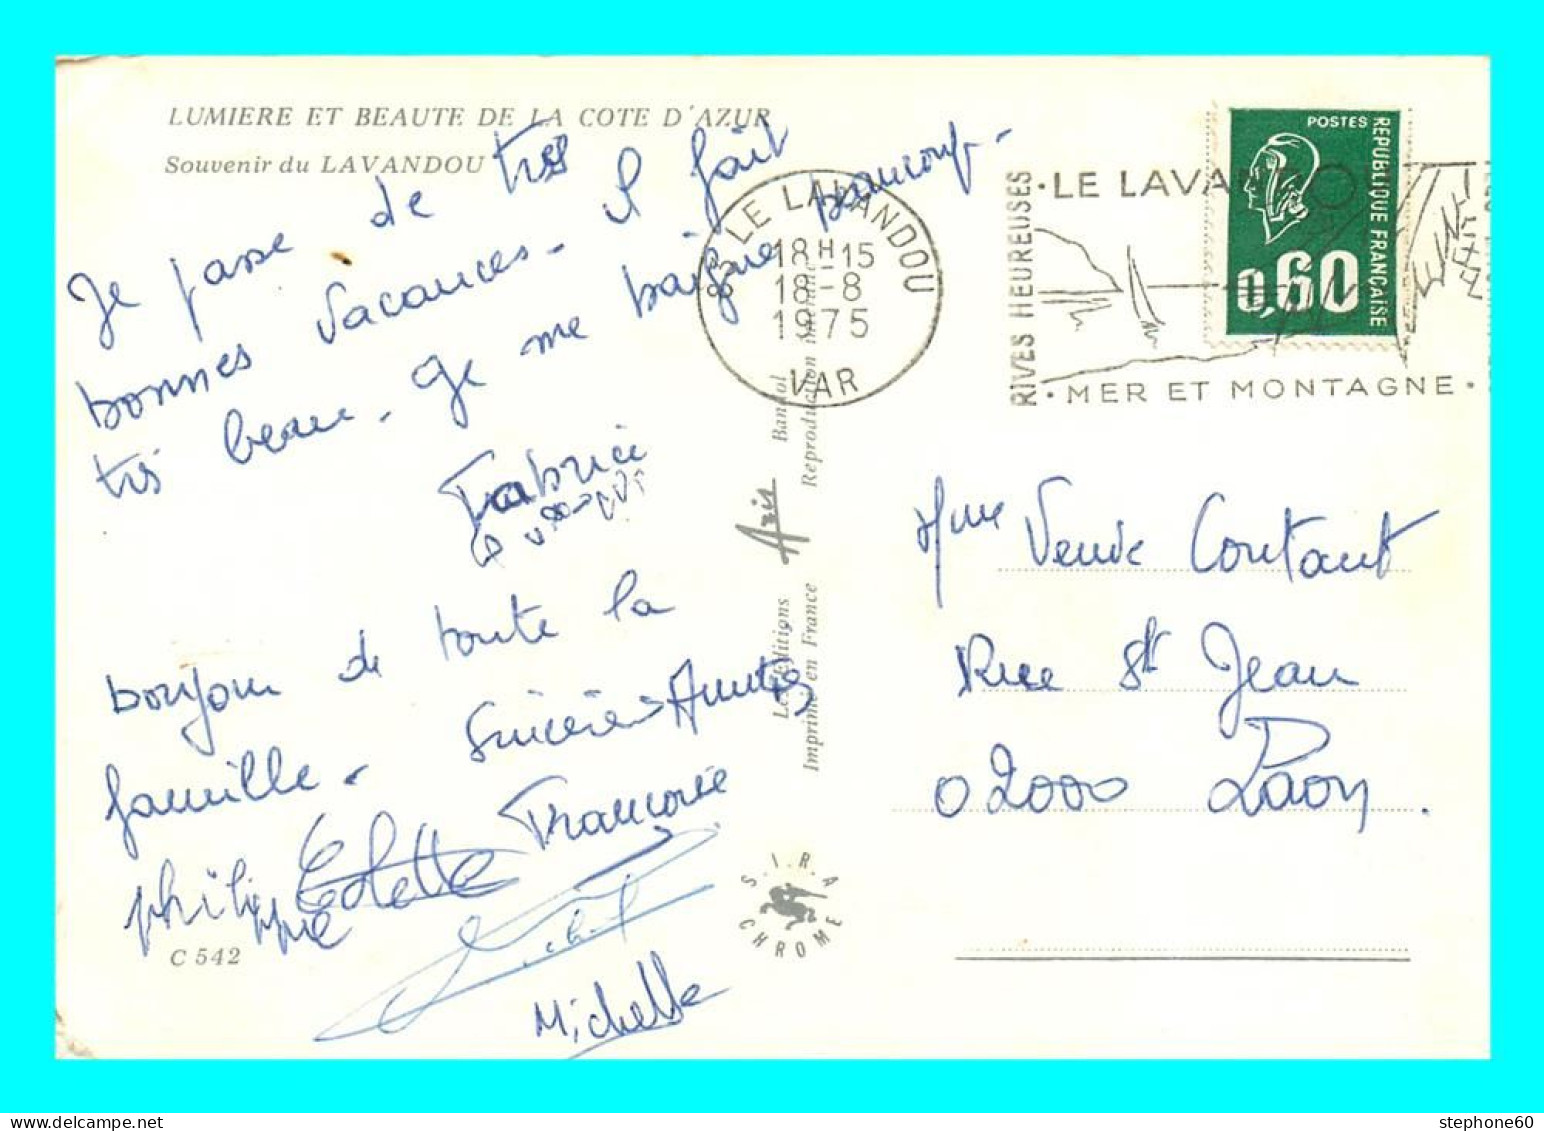 LUMIERE ET BEAUTE DE LA COTE D'AZUR
Souvenir du LAVANDOU
Je passe de très
bonnes vacances - Il fait
très beau. Je me baigne beaucoup -
Fabrice
bonjour de toute la
famille. Sincères Amitiés
Philippe Colette Francoise
Michel
Michelle
C 542
83 LE LAVANDOU
18H-15
18-8
1975
VAR
RIVES HEUREUSES
· LE LAVAN
· MER ET MONTAGNE ·
POSTES
REPUBLIQUE FRANÇAISE
0,60
Les Editions Azis Bandol
Imprimé en France Reproduction interdite
S.I.R.A
CHROME
Mme Veuve Coutant
Rue St Jean
02000 Laon.
stephone60